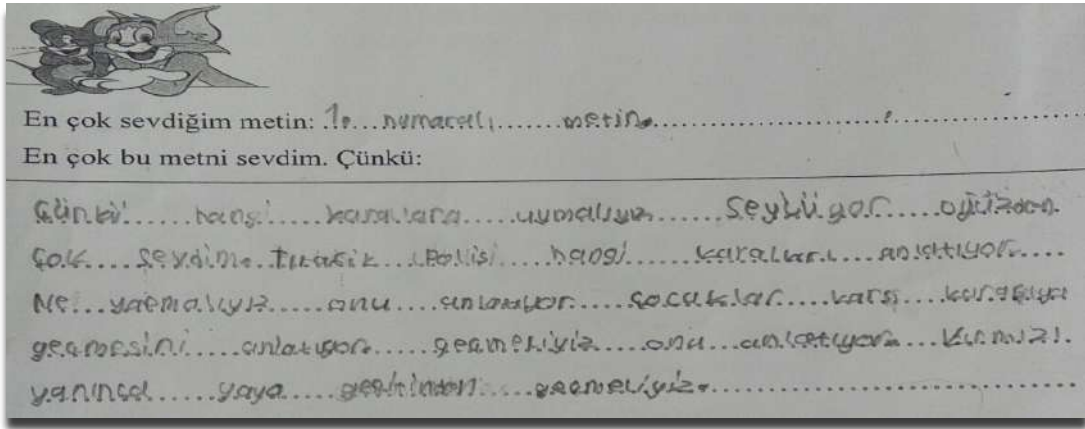 En çok sevdiğim metin: 1. numaralı metin.
En çok bu metni sevdim. Çünkü:
Çünkü hangi karalara uymalıyız seylüyor oyüzden.
çok sevdim. Trafik polisi hangi karaları anlatıyor.
Ne yapmalıyız onu anlatıyor çocuklar karsı karşıya
geçmesini anlatıyor geçmeliyiz onu anlatıyor. Kırmızı.
yanınca yaya geçitinden geçmeliyiz.